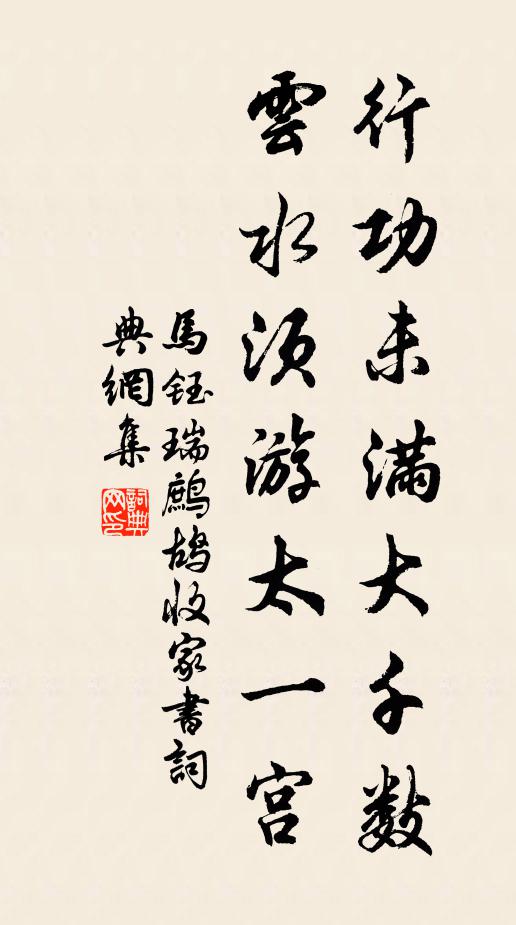 行功未满大千数
雲水須游太一宫
馬鈺瑞鷓鴣收家書詞
典網集
詞典网印